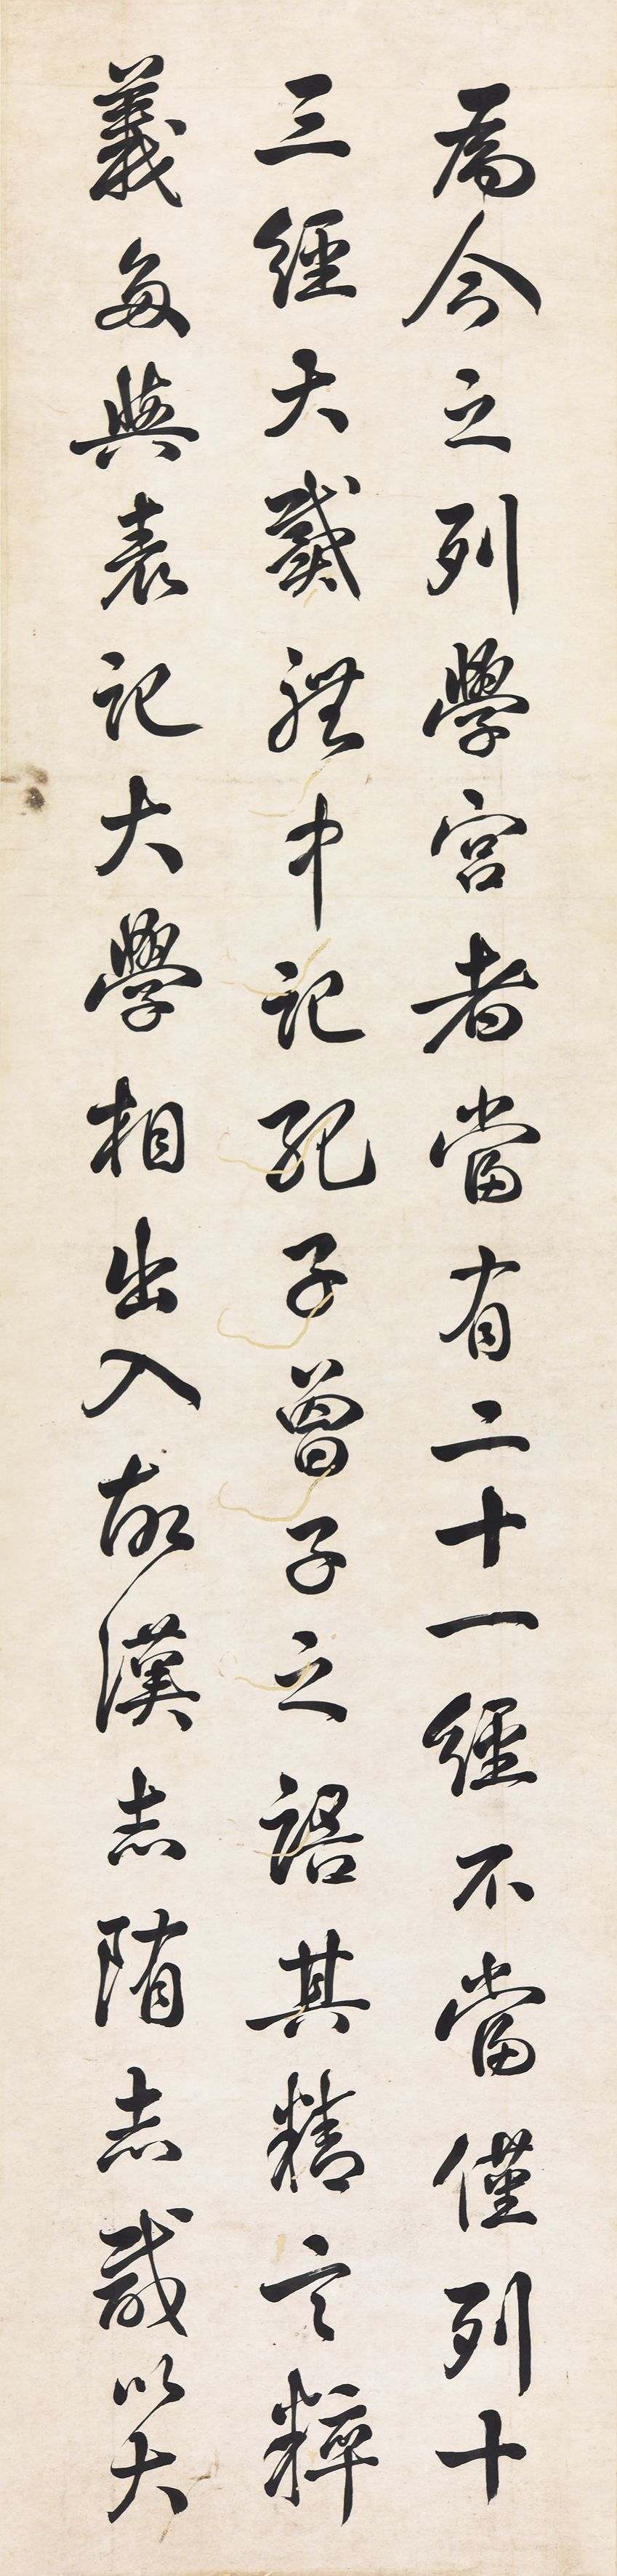 為今立列學宮者當有二十一經不當僅列十
三經大戴禮中記孔子曾子之語其精言粹
義每與表記大學相出入故漢志隋志咸以大